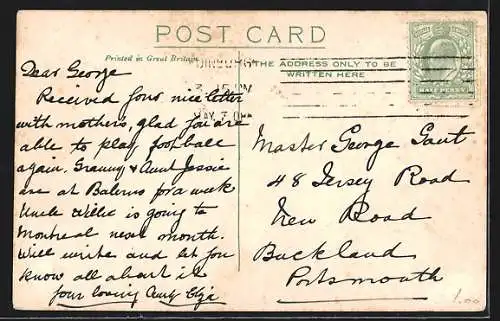 POST CARD
Printed in Great Britain
THE ADDRESS ONLY TO BE
WRITTEN HERE
HALF PENNY
Dear George
Received your nice letter
with mothers, glad you are
able to play football
again. Granny & Aunt Jessie
are at Balerno for a week
Uncle Willie is going to
Montreal next month.
Will write and let you
know all about it
your loving Aunt Eliza
Master George Gaut
48 Jersey Road
New Road
Buckland
Portsmouth
1.00